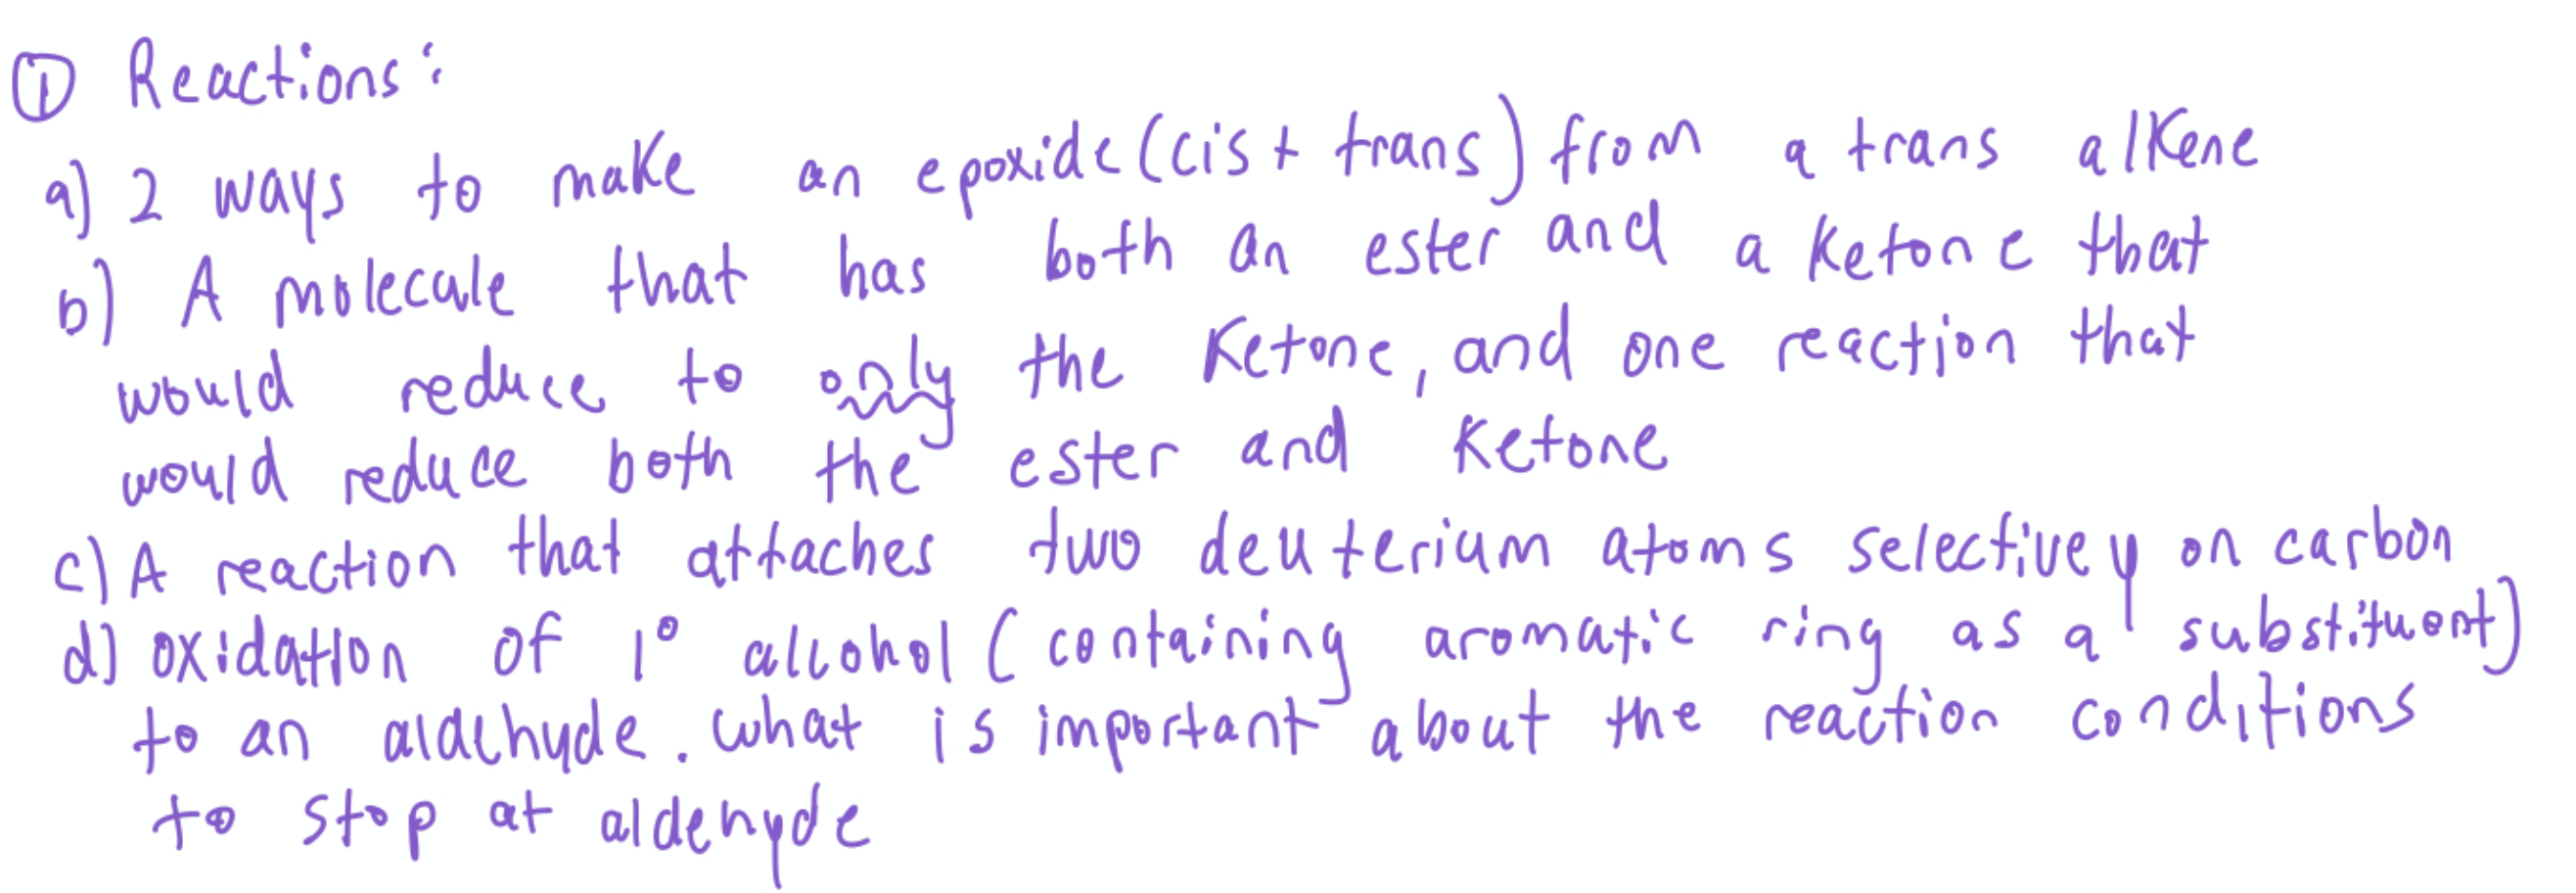 ① Reactions:
a) 2 ways to make an epoxide (cis + trans) from a trans alkene
b) A molecule that has both an ester and a ketone that
would reduce to only the ketone, and one reaction that
would reduce both the ester and ketone
c) A reaction that attaches two deuterium atoms selectivey on carbon
d) oxidation of 1° alcohol (containing aromatic ring as a substituent)
to an aldehyde. what is important about the reaction conditions
to stop at aldehyde